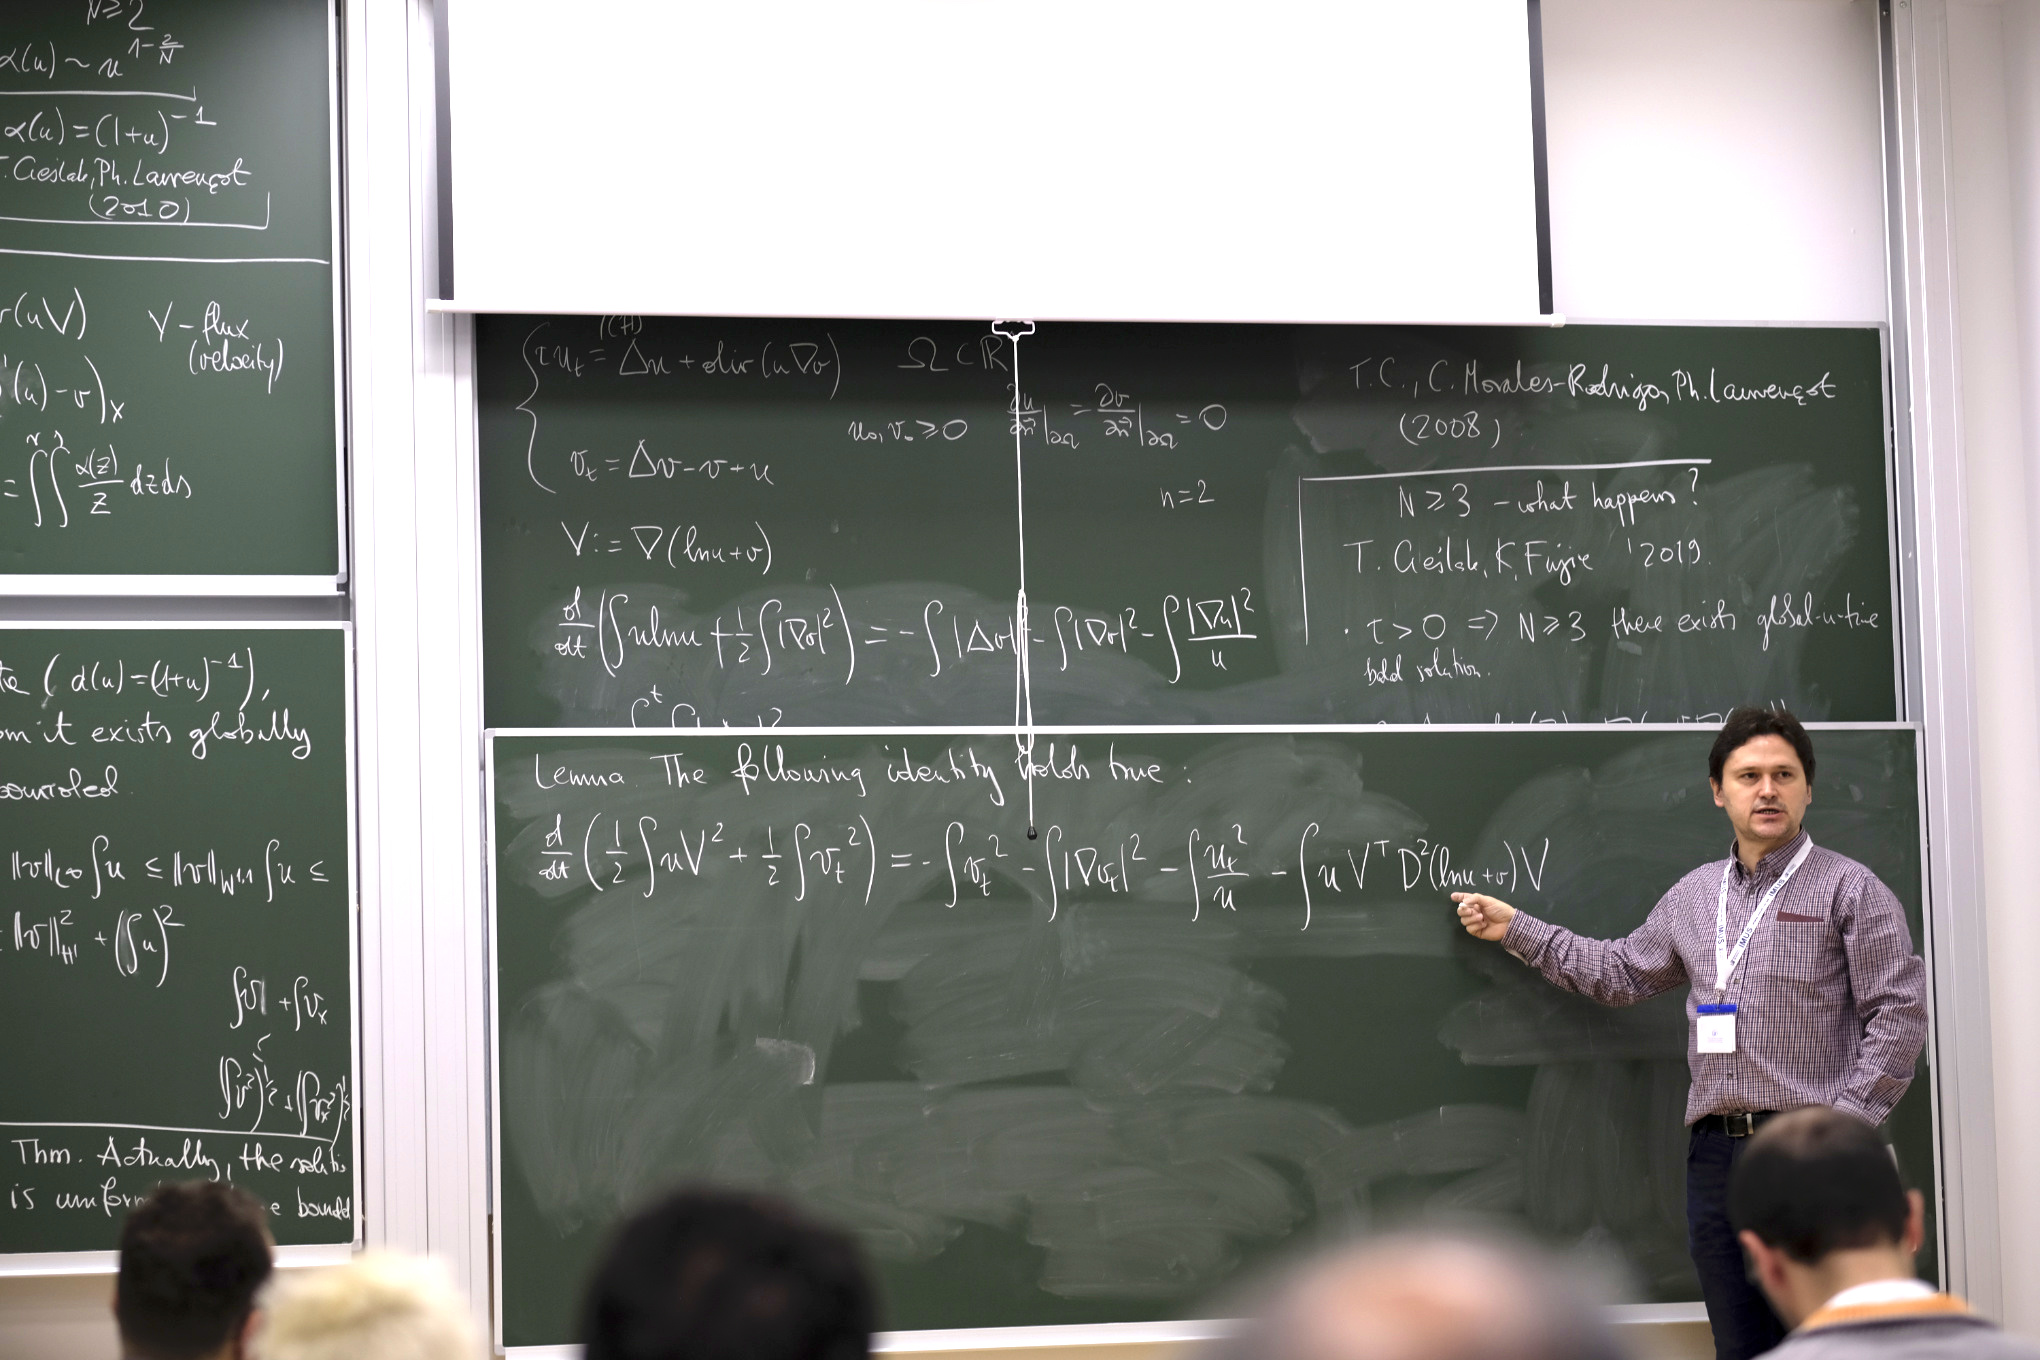 N≥2
α(u) ~ u^{1-2/N}
α(u) = (1+u)^{-1}
T. Cieślak, Ph. Laurençot
(2010)
(uV) V - flux
(velocity)
(u) - v)_x
= ∫∫ α(z)/z dzds
(d(u) = (1+u)^{-1}),
it exists globally
‖v‖_∞ ∫u ≤ ‖v‖_{W^{1,1}} ∫u ≤
‖v‖²_{H¹} + (∫u)²
∫|v| + ∫v_x
(∫v²)^{1/2} + (∫v_x²)^{1/2}
Thm. Actually, the
is
τu_t = Δu + div(u∇v) Ω ⊂ ℝ
u₀, v₀ ≥ 0 ∂u/∂n⃗|_{∂Ω} = ∂v/∂n⃗|_{∂Ω} = 0
v_t = Δv - v + u
n=2
V := ∇(ln u + v)
d/dt (∫u ln u + 1/2 ∫|∇v|²) = -∫|Δv| - ∫|∇v|² - ∫ |∇u|²/u
T.C., C. Morales-Rodrigo, Ph. Laurençot
(2008)
N ≥ 3 - what happens?
T. Cieślak, K. Fujie '2019.
· τ > 0 ⇒ N ≥ 3 there exists global-in-time
solution.
Lemma. The following identity holds true:
d/dt (1/2 ∫uV² + 1/2 ∫v_t²) = -∫v_t² - ∫|∇v_t|² - ∫ u_t²/u - ∫u V^T D²(ln u + v) V
IMUS
IMUS